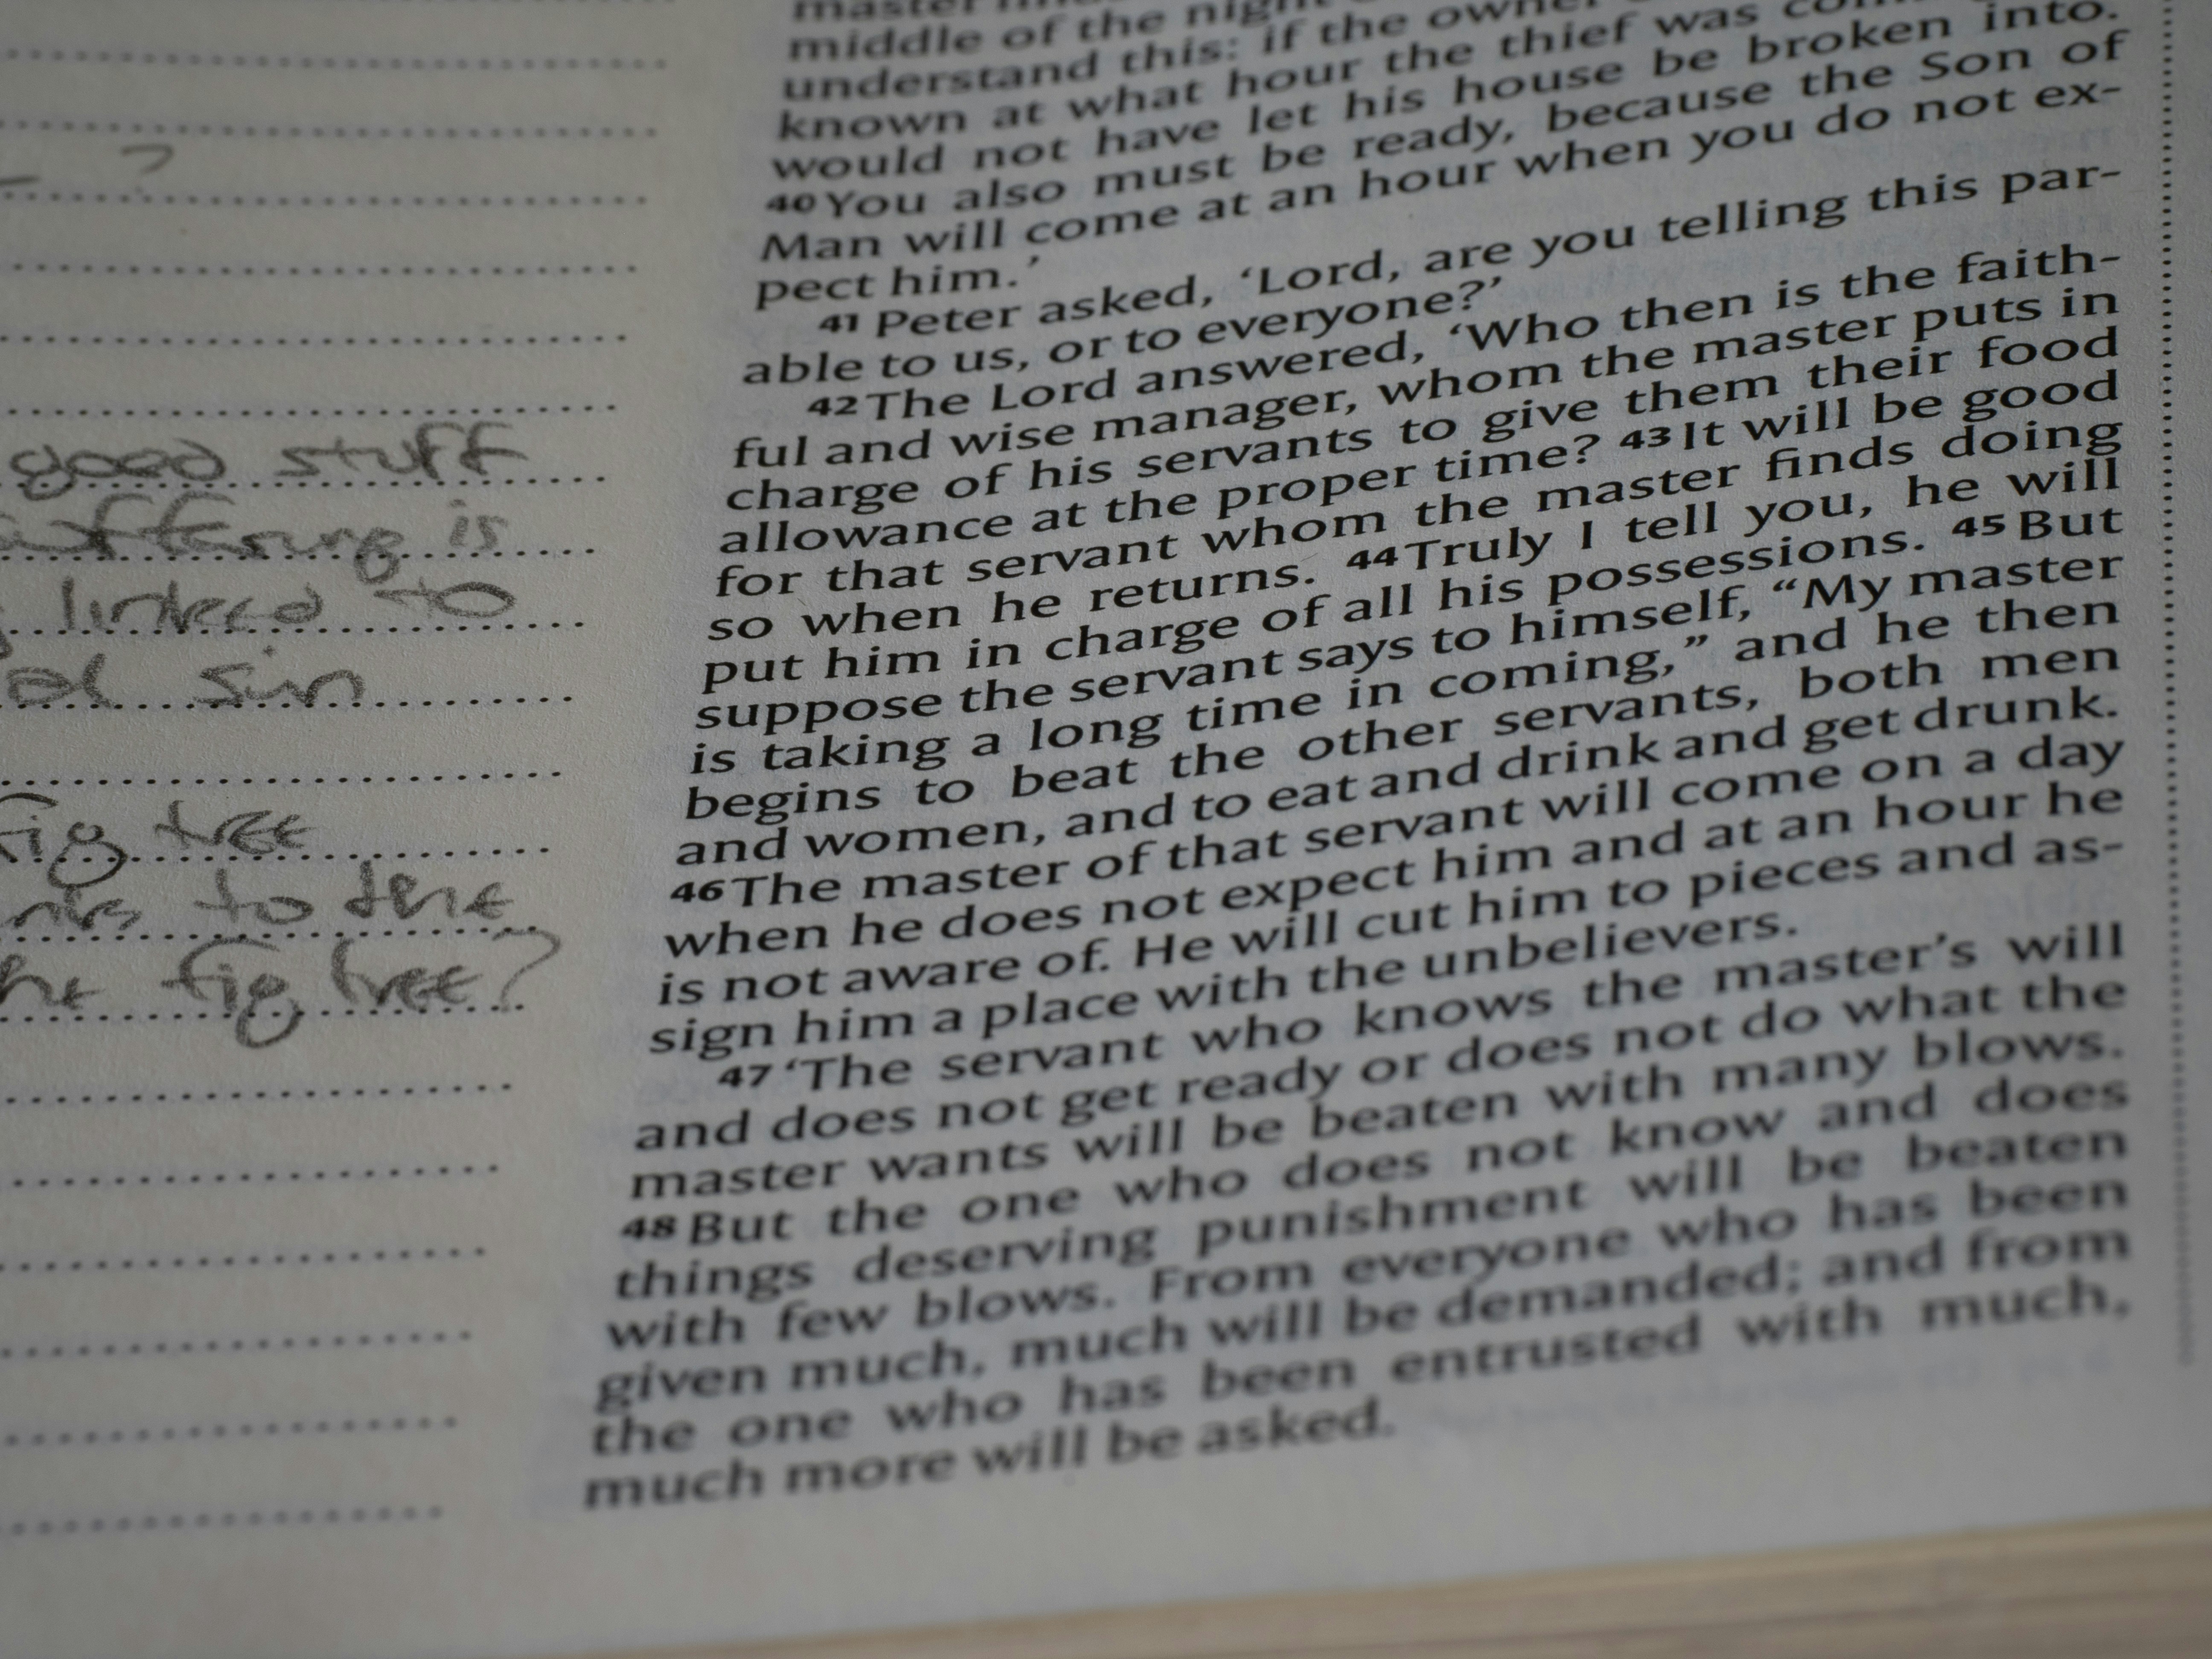 ?
good stuff
suffering is
linked to
al sin
fig tree
to the
fig tree?
middle of the night
understand this: if the owner
known at what hour the thief was
would not have let his house be broken into.
40 You also must be ready, because the Son of
Man will come at an hour when you do not ex-
pect him.’
41 Peter asked, ‘Lord, are you telling this par-
able to us, or to everyone?’
42 The Lord answered, ‘Who then is the faith-
ful and wise manager, whom the master puts in
charge of his servants to give them their food
allowance at the proper time? 43 It will be good
for that servant whom the master finds doing
so when he returns. 44 Truly I tell you, he will
put him in charge of all his possessions. 45 But
suppose the servant says to himself, “My master
is taking a long time in coming,” and he then
begins to beat the other servants, both men
and women, and to eat and drink and get drunk.
46 The master of that servant will come on a day
when he does not expect him and at an hour he
is not aware of. He will cut him to pieces and as-
sign him a place with the unbelievers.
47 ‘The servant who knows the master’s will
and does not get ready or does not do what the
master wants will be beaten with many blows.
48 But the one who does not know and does
things deserving punishment will be beaten
with few blows. From everyone who has been
given much, much will be demanded; and from
the one who has been entrusted with much,
much more will be asked.